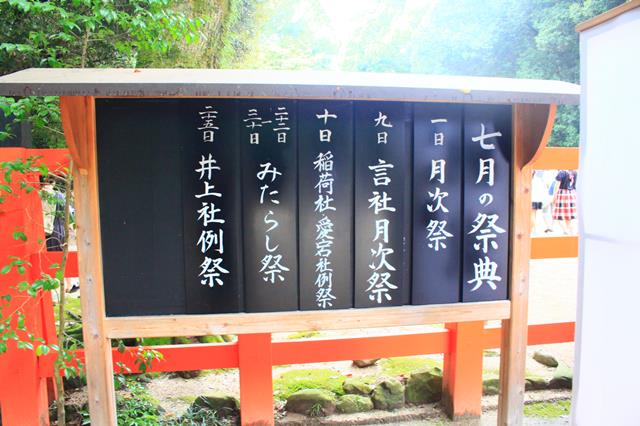 七月の祭典
一日 月次祭
九日 言社月次祭
十日 稲荷社・愛宕社例祭
二十二日―三十一日 みたらし祭
二十五日 井上社例祭